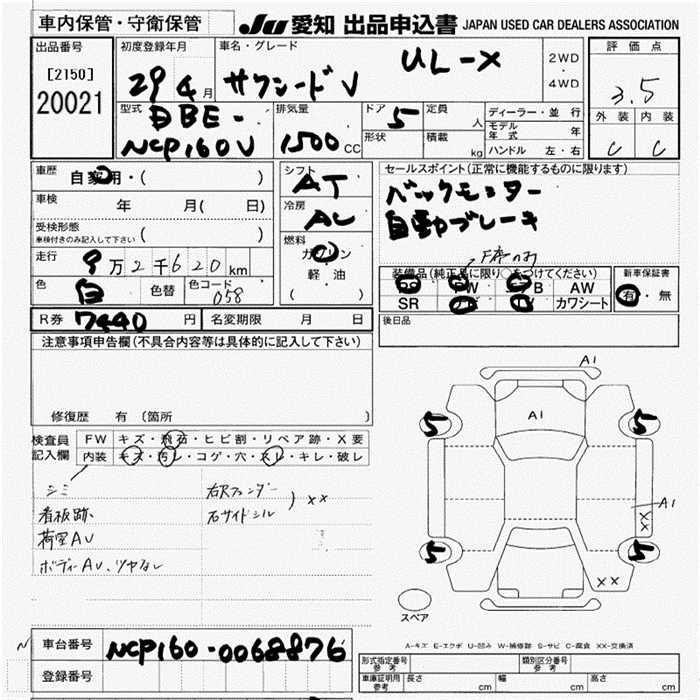 車内保管・守衛保管
JU 愛知 出品申込書 JAPAN USED CAR DEALERS ASSOCIATION
出品番号
[2150]
20021
初度登録年月
29 4月
車名・グレード
サクシードV
UL-X
2WD
・
4WD
評価点
3.5
外装 内装
C C
型式
DBE-
NCP160V
排気量
1500cc
ドア 5
形状
定員 人
積載 kg
ディーラー・並行
モデル年式 年
ハンドル 左・右
車歴 自家用・( )
車検 年 月( 日)
受検形態
車検付きのみ記入して下さい ( )
走行 9万2千620km
色 白 色替 色コード 058
シフト
AT
冷房
AC
燃料
ガソリン
軽油
( )
セールスポイント(正常に機能するものに限ります)
バックモニター
自動ブレーキ
F席のみ
装備品(純正品に限り○をつけてください)
PS PW エアB AW
SR ナビ TV カワシート
新車保証書
有・無
R券 7440円 名変期限 月 日
後日品
注意事項申告欄(不具合内容等は具体的に記入して下さい)
修復歴 有 〔箇所 〕
検査員記入欄
FW キズ・飛石・ヒビ割・リペア跡・X要
内装 キズ・汚レ・コゲ・穴・スレ・キレ・破レ
シミ
看板跡
荷室AU
ボディーAU、ツヤなし
右Rフェンダー
右サイドシル
) XX
A1
A1
5 5
A1
XX
5 5
XX
スペア
A-キズ E-エクボ U-凹み W-補修跡 S-サビ C-腐食 XX-交換済
車台番号 NCP160-0068876
登録番号
形式指定番号
参考
類別区分番号
参考
車庫証明用
参考
長さ cm 幅 cm 高さ cm